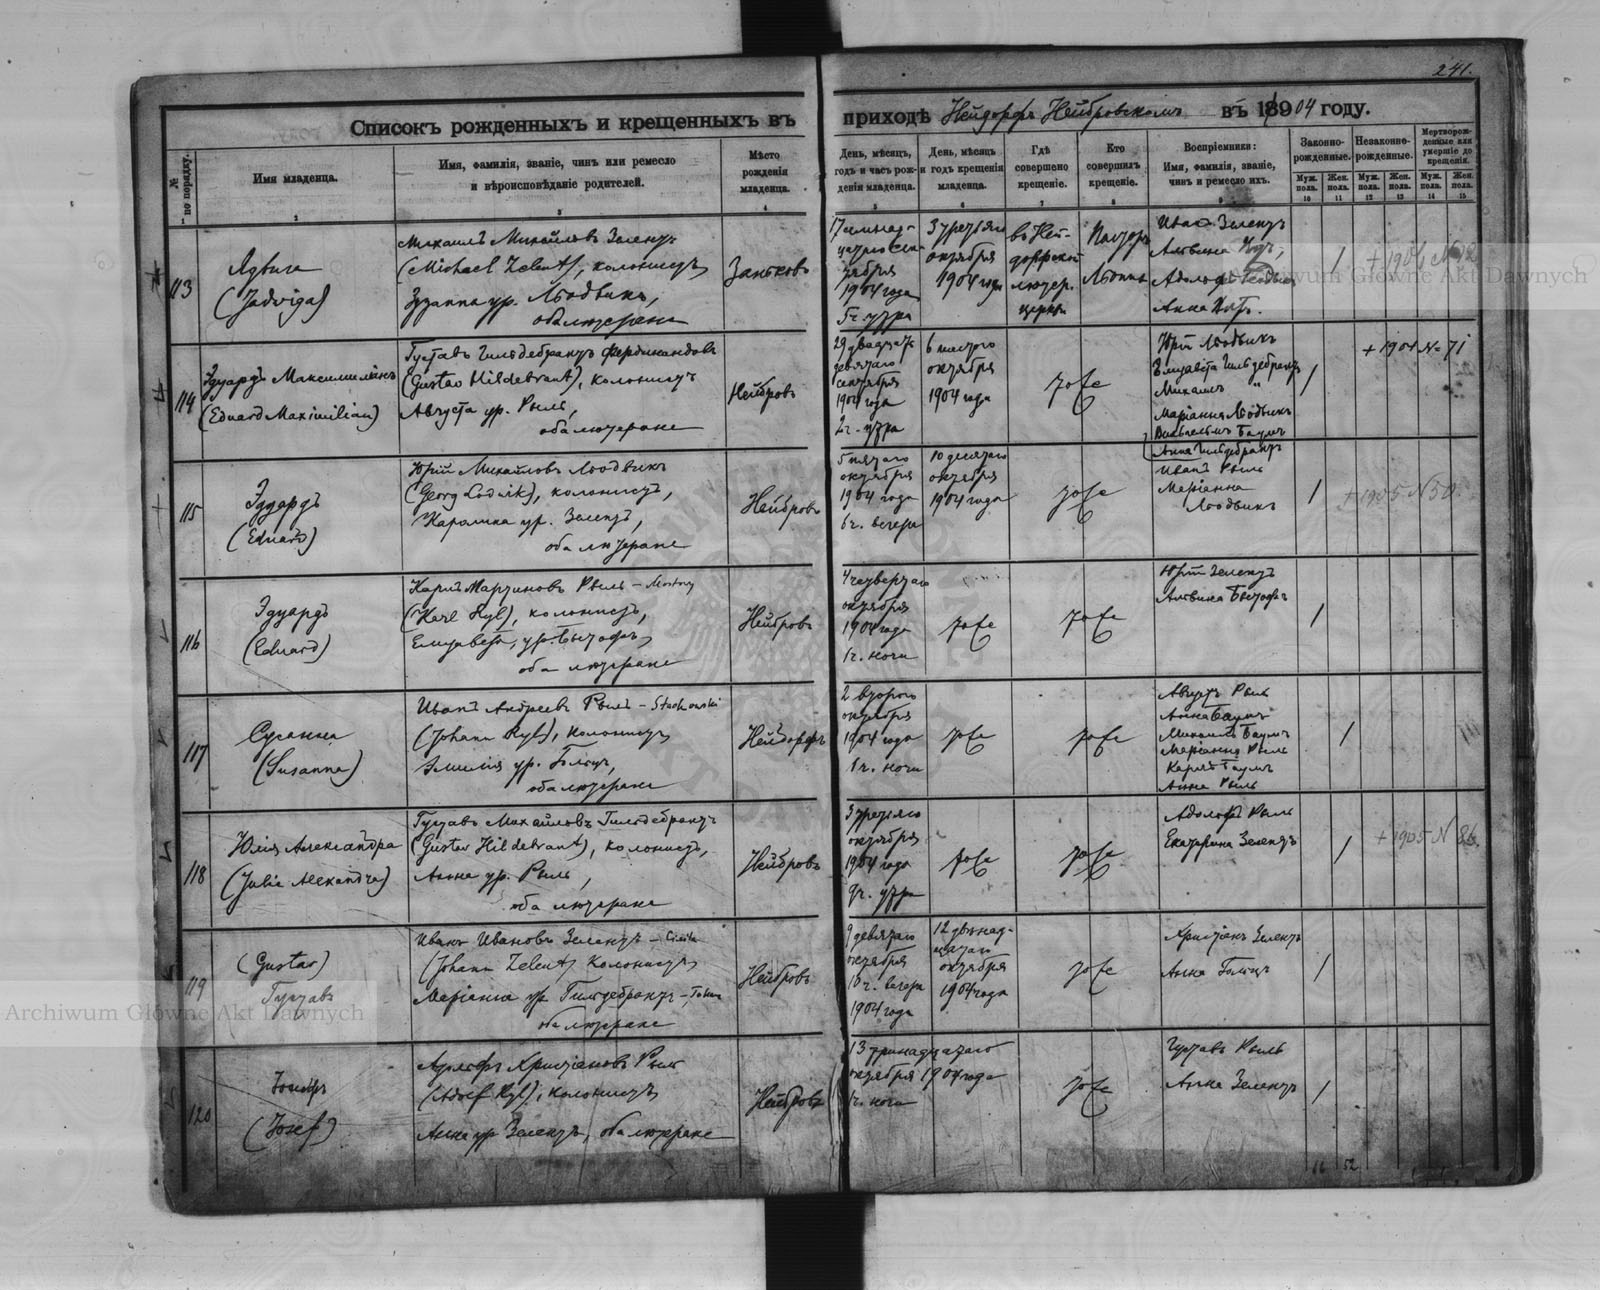 241.
Списокъ рожденныхъ и крещенныхъ въ приходѣ Нейдорфъ Нейбровскомъ въ 1904 году.
№ по порядку.
Имя младенца.
Имя, фамилія, званіе, чинъ или ремесло
и вѣроисповѣданіе родителей.
Мѣсто
рожденія
младенца.
День, мѣсяцъ,
годъ и часъ рож-
денія младенца.
День, мѣсяцъ
и годъ крещенія
младенца.
Гдѣ
совершено
крещеніе.
Кто
совершилъ
крещеніе.
Воспріемники:
Имя, фамилія, званіе,
чинъ и ремесло ихъ.
Законно-
рожденные.
Незаконно-
рожденные.
Мертворож-
денные или
умершіе до
крещенія.
Муж. пола.
Жен. пола.
Муж. пола.
Жен. пола.
Муж. пола.
Жен. пола.
1 2 3 4 5 6 7 8 9 10 11 12 13 14 15
113
Ядвига
(Jadviga)
Михаилъ Михайловъ Зелентъ
(Michael Zelent), колонистъ
Зузанна ур. Людвикъ,
оба лютеране
17
сентября
1904 года
5 ч. утра
3 третьяго
октября
1904 года
въ Ней-
дорфской
лютер.
церкви
Пасторъ
Иванъ Зелентъ
Альвина
Адольфъ
Анна
1
+ 1904
114
Эдуардъ Максимильянъ
(Eduard Maximilian)
Густавъ Гильдебрантъ Фердинандовъ
(Gustav Hildebrant), колонистъ
Августа ур. Рыль,
оба лютеране
Нейбровъ
29 двадцать
девятаго
сентября
1904 года
2 ч. утра
6 шестого
октября
1904 года
тоже
Юрій Людвикъ
Елизавета Гильдебрантъ
Михаилъ "
Маріанна Людвикъ
Вильгельмъ Баумъ
Анна Гильдебрантъ
1
+ 1904 № 71
115
Эдуардъ
(Eduard)
Юрій Михайловъ Людвикъ
(Georg Ludwik), колонистъ,
Каролина ур. Зелентъ,
оба лютеране
Нейбровъ
5 пятаго
октября
1904 года
6 ч. вечера
10 десятаго
октября
1904 года
тоже
Иванъ Рыль
Маріанна
Людвикъ
1
+ 1905 N 50
116
Эдуардъ
(Eduard)
Карлъ Мартиновъ Рыль
(Karl Ryl), колонистъ,
Елизавета, ур.
оба лютеране
Нейбровъ
4 четвертаго
октября
1904 года
1 ч. ночи
тоже
тоже
Юрій Зелентъ
Альвина
1
117
Сусанна
(Susanna)
Иванъ Андреевъ Рыль – Stachowski
(Johann Ryl), колонистъ
Эмилія ур. Гольцъ,
оба лютеране
Нейдорфъ
2 второго
октября
1904 года
1 ч. ночи
тоже
тоже
Августъ Рыль
Анна Баумъ
Михаилъ Баумъ
Маріанна Рыль
Карлъ Баумъ
Анна Рыль
1
118
Юлія Александра
(Julia Alexandra)
Густавъ Михайловъ Гильдебрантъ
(Gustav Hildebrant), колонистъ,
Анна ур. Рыль,
оба лютеране
Нейбровъ
3 третьяго
октября
1904 года
9 ч. утра
тоже
тоже
Адольфъ Рыль
Екатерина Зелентъ
1
+ 1905 N
119
(Gustav)
Густавъ
Иванъ Ивановъ Зелентъ
(Johann Zelent) колонистъ
Маріанна ур Гильдебрантъ
оба лютеране
Нейбровъ
9 девятаго
октября
10 ч. вечера
1904 года
12 двѣнад-
цатаго
октября
1904 года
тоже
Христіанъ Зелентъ
Анна Гольцъ
1
120
Іосифъ
(Josef)
Адольфъ Христіановъ Рыль
(Adolf Ryl), колонистъ
Анна ур Зелентъ, оба лютеране
Нейбровъ
13 тринадцатаго
октября 1904 года
1 ч. ночи
тоже
Густавъ Рыль
Анна Зелентъ
1
52
Archiwum Główne Akt Dawnych
Archiwum Główne Akt Dawnych